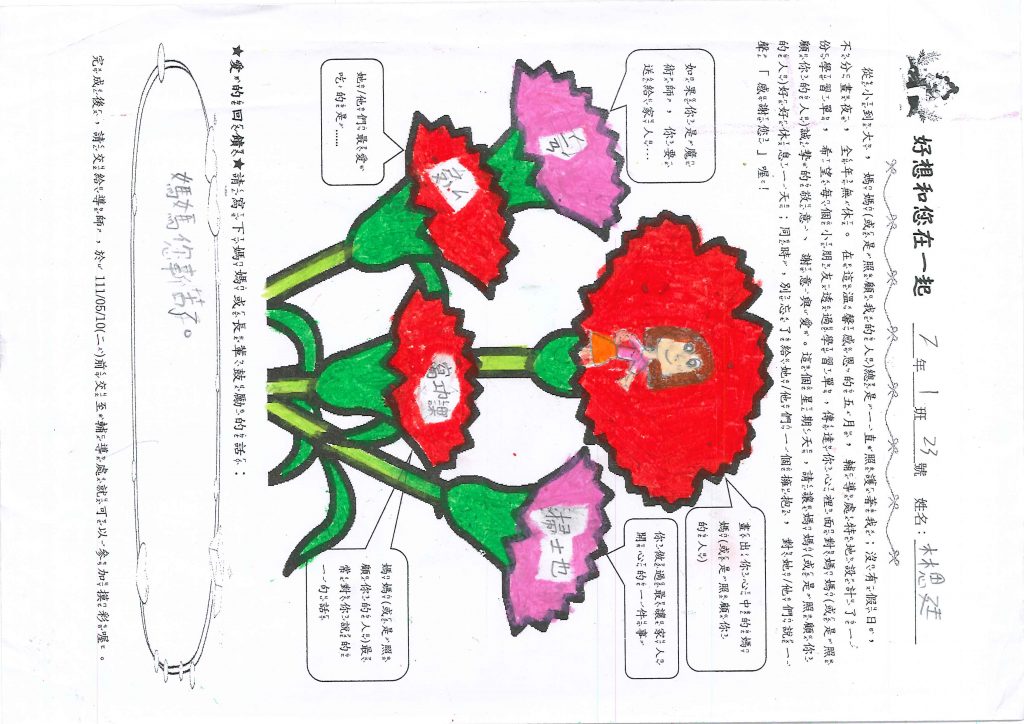 好想和您在一起 7年 1班 23號 姓名：林想廷
從小到大，媽媽(或是照顧我的人)總是一直照護著我；沒有假日，
不分晝夜，全年無休。在這溫馨感恩的五月，輔導處特地設計了一
份學習單，希望每個小朋友透過學習單，傳達你心裡面對媽媽(或是照
顧你的人)誠摯的敬意、謝意與愛。這個星期天，請讓媽媽(或是照顧你
的人)好好休息一天；同時，別忘了給她/他們一個擁抱，對她/他們說一
聲「感謝您」喔！
如果你是魔
術師，你要
送給家人…
畫出你心中的媽
媽(或是照顧你
的人)
她/他們最愛
吃的是……
你做過最讓家人
開心的一件事
寫功課
掃土也
媽媽(或是照
顧你的人)最
常對你說的
一句話
★愛的回饋★請寫下媽媽或長輩鼓勵的話：
媽媽您辛苦了。
完成後，請交給導師，於111/05/10(二)前交至輔導處就可以參加摸彩喔。